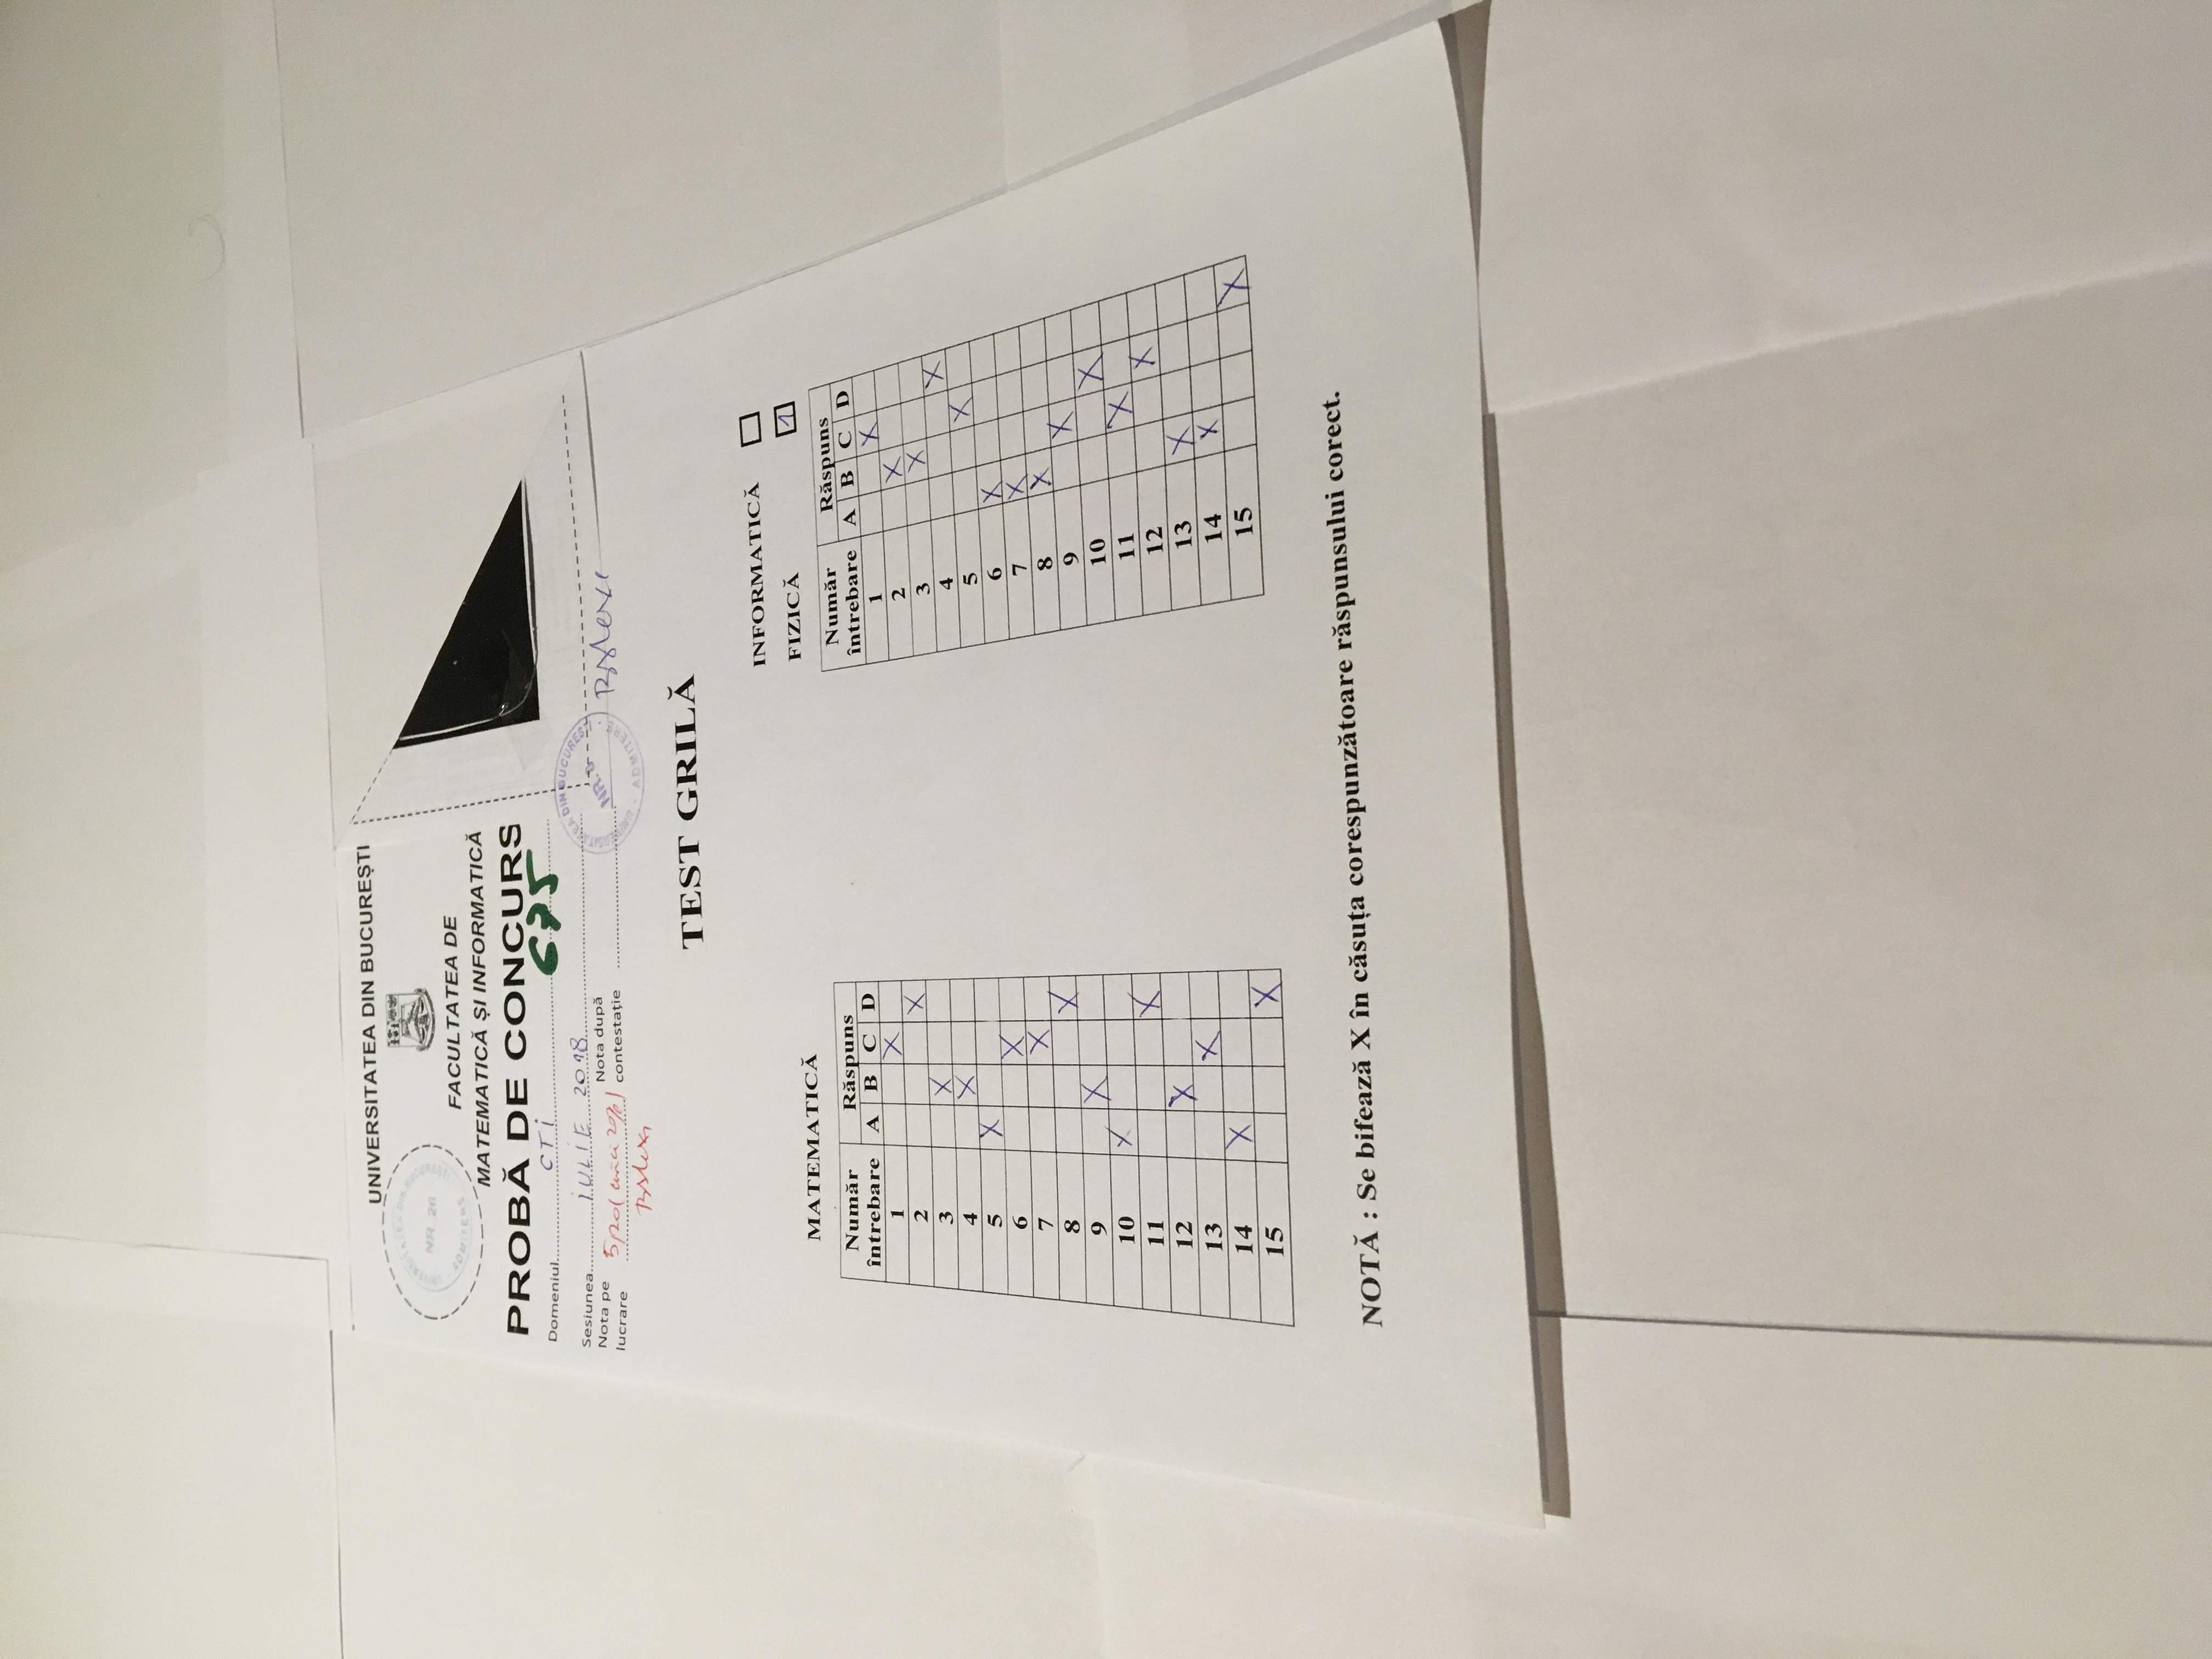 UNIVERSITATEA DIN BUCUREȘTI
UNIVERSITATEA DIN BUCUREȘTI
NR. 26
ADMITERE
FACULTATEA DE
MATEMATICĂ ȘI INFORMATICĂ
PROBĂ DE CONCURS
Domeniul CTI 675
Sesiunea IULIE 2018
Nota pe lucrare 5,20 (cinci 20%)
Nota după contestație
UNIVERSITATEA DIN BUCUREȘTI
NR. 8
ADMITERE
TEST GRILĂ
INFORMATICĂ
FIZICĂ 1
MATEMATICĂ
Număr întrebare Răspuns
A B C D
1 X
2 X
3 X
4 X
5 X
6 X
7 X
8 X
9 X
10 X
11 X
12 X
13 X
14 X
15 X
Număr întrebare Răspuns
A B C D
1 X
2 X
3 X
4 X
5 X
6 X
7 X
8 X
9 X
10 X
11 X
12 X
13 X
14 X
15 X
NOTĂ : Se bifează X în căsuța corespunzătoare răspunsului corect.